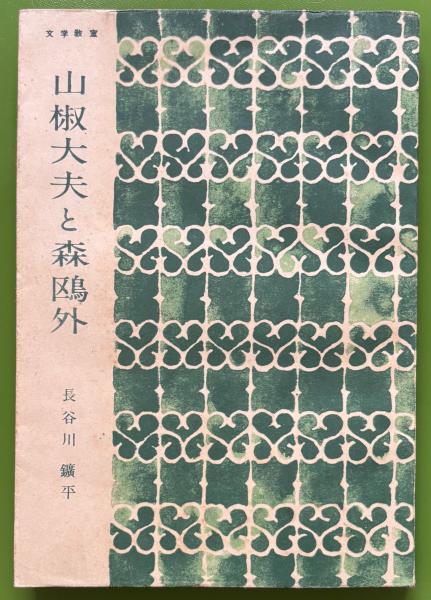 文学教室
山椒大夫と森鷗外
長谷川鑛平